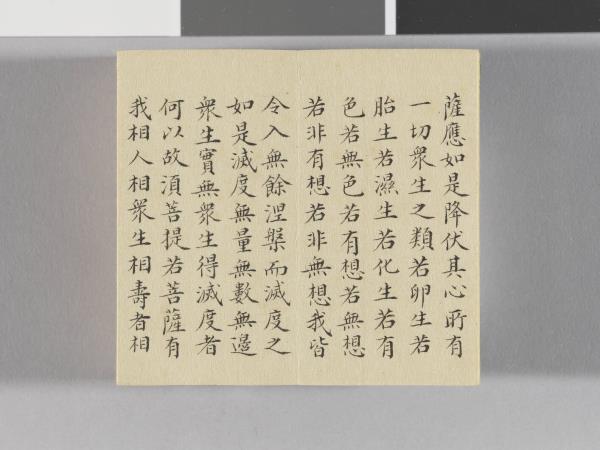 薩應如是降伏其心所有
一切衆生之類若卵生若
胎生若濕生若化生若有
色若無色若有想若無想
若非有想若非無想我皆
令入無餘涅槃而滅度之
如是滅度無量無數無邊
衆生實無衆生得滅度者
何以故須菩提若菩薩有
我相人相衆生相壽者相